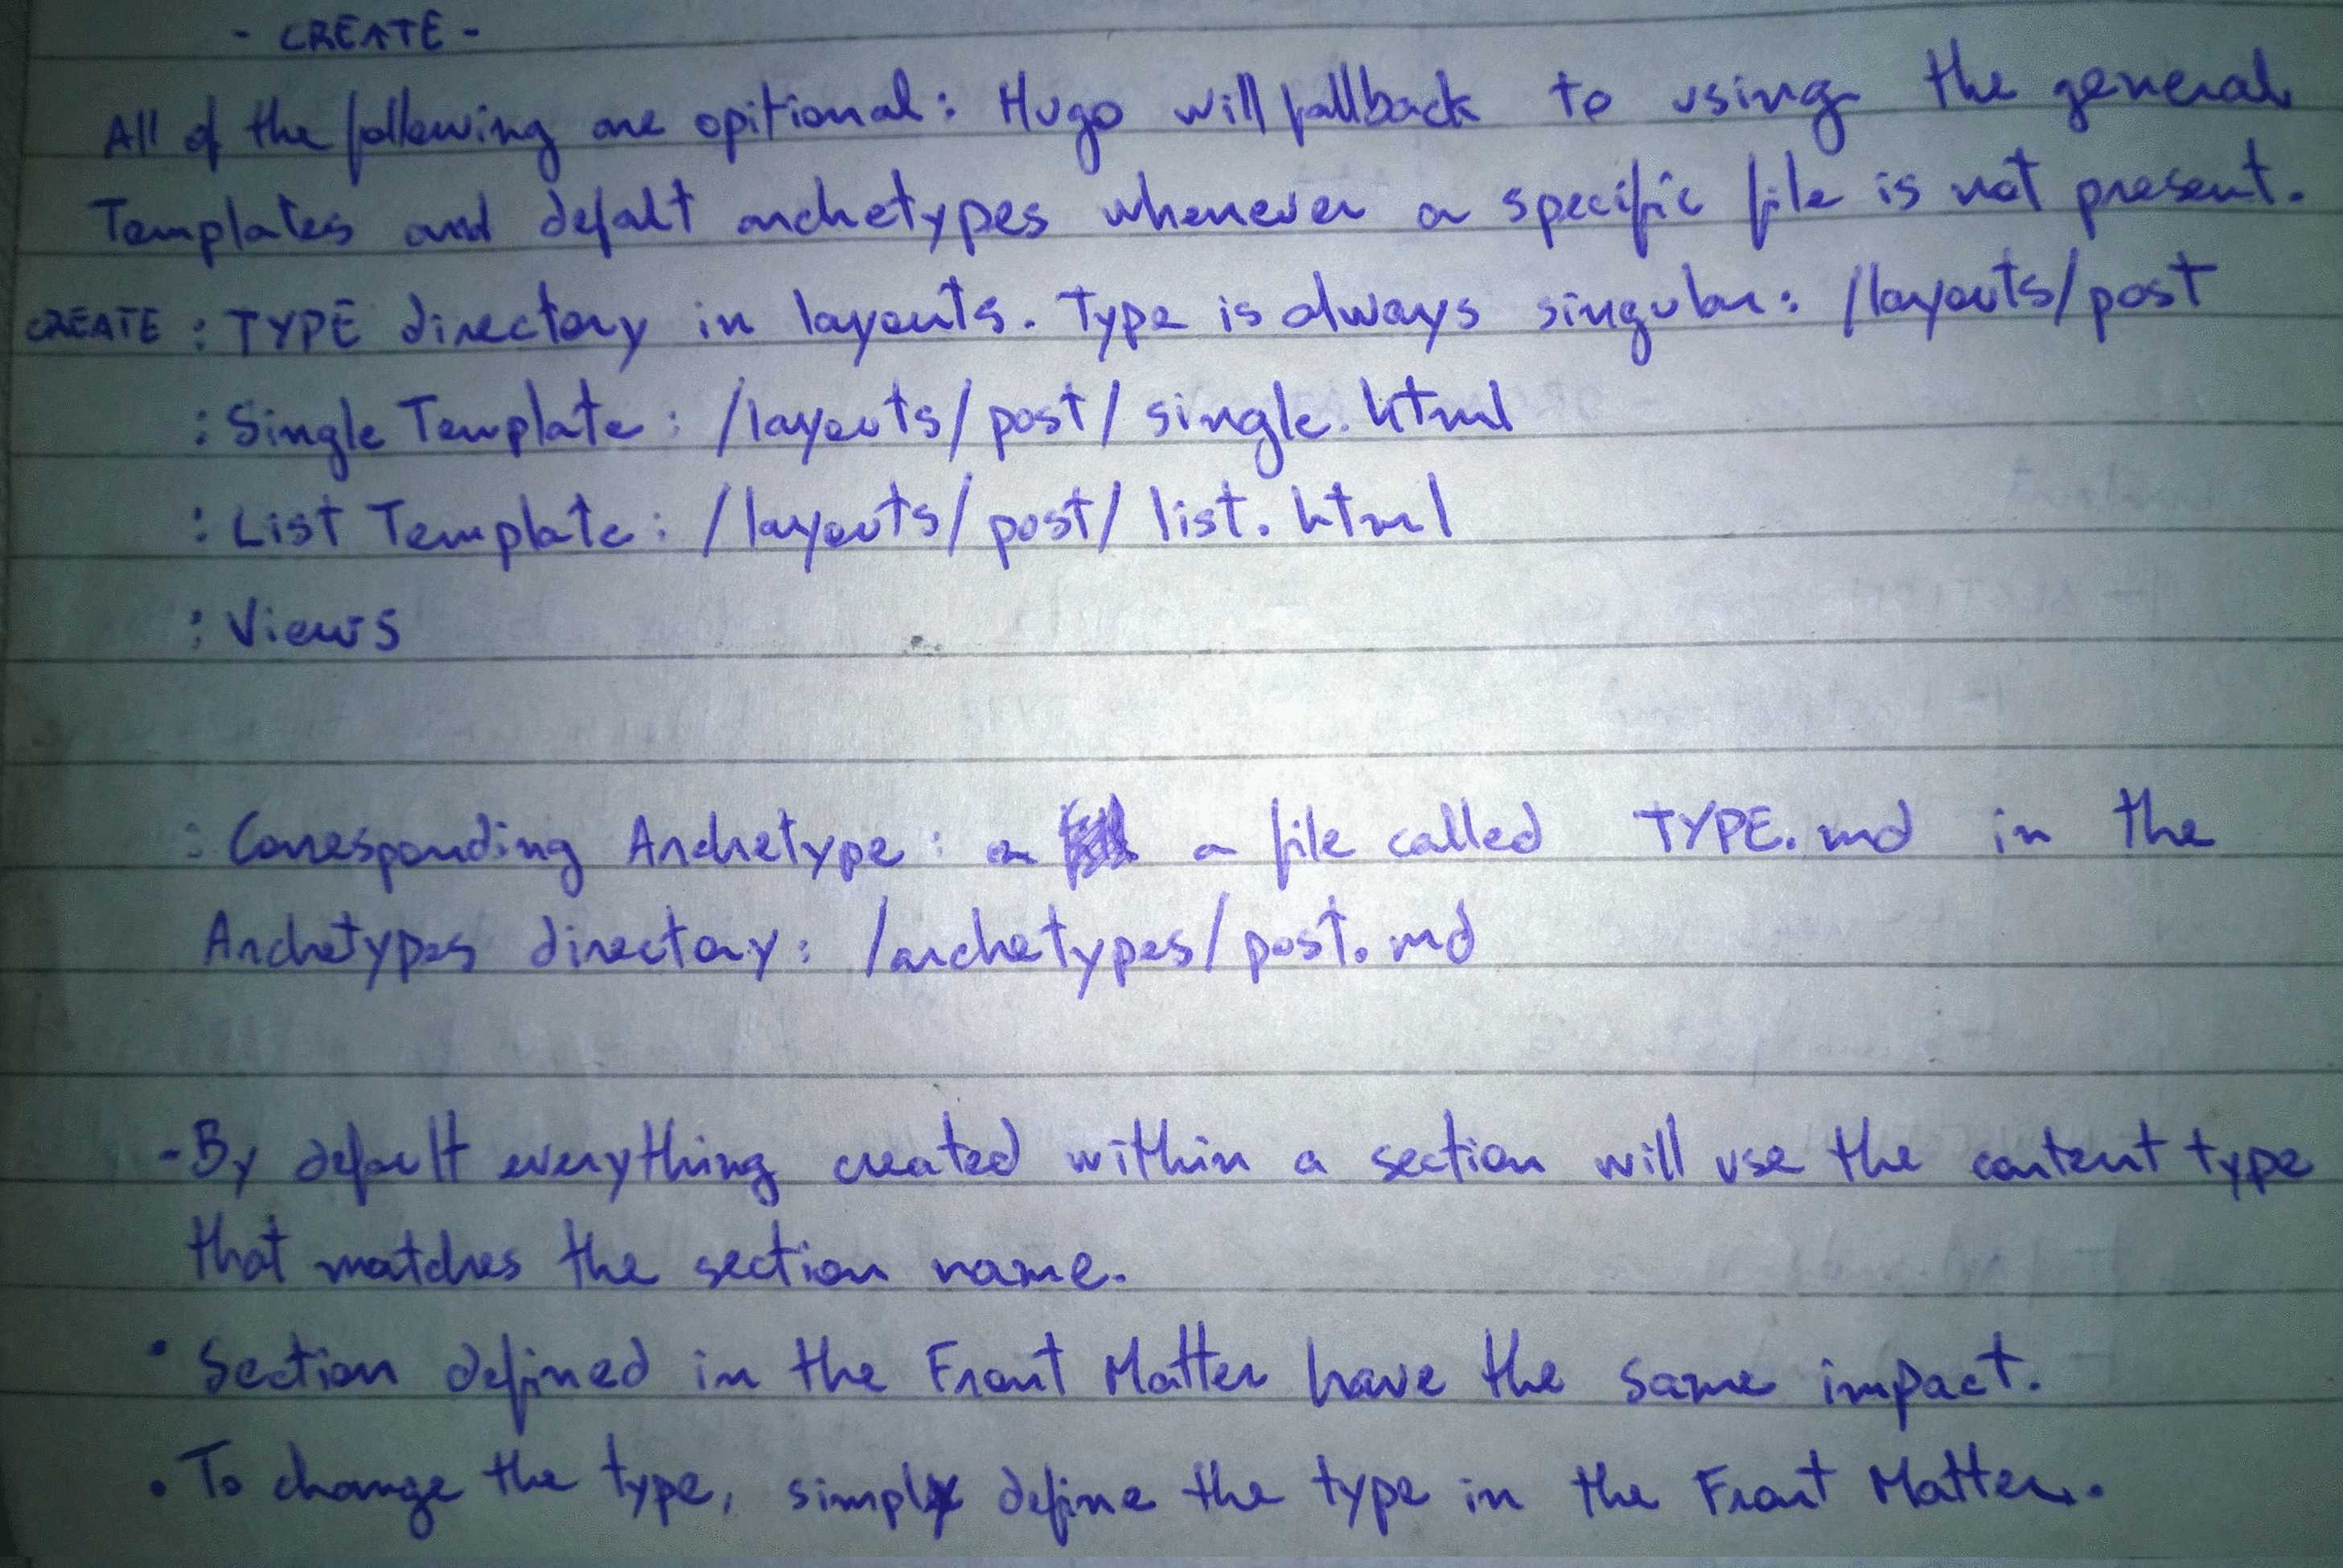 - CREATE -
All of the following are opitional: Hugo will fallback to using the general
Templates and defalt archetypes whenever a specific file is not present.
CREATE : TYPE directory in layouts. Type is always singular: /layouts/post
: Single Template: /layouts/post/single.html
: List Template: /layouts/post/list.html
: Views
: Corresponding Archetype: a a file called TYPE.md in the
Archetypes directory: /archetypes/post.md
- By default everything created within a section will use the content type
that matches the section name.
• Section defined in the Front Matter have the same impact.
• To change the type, simply define the type in the Front Matter.